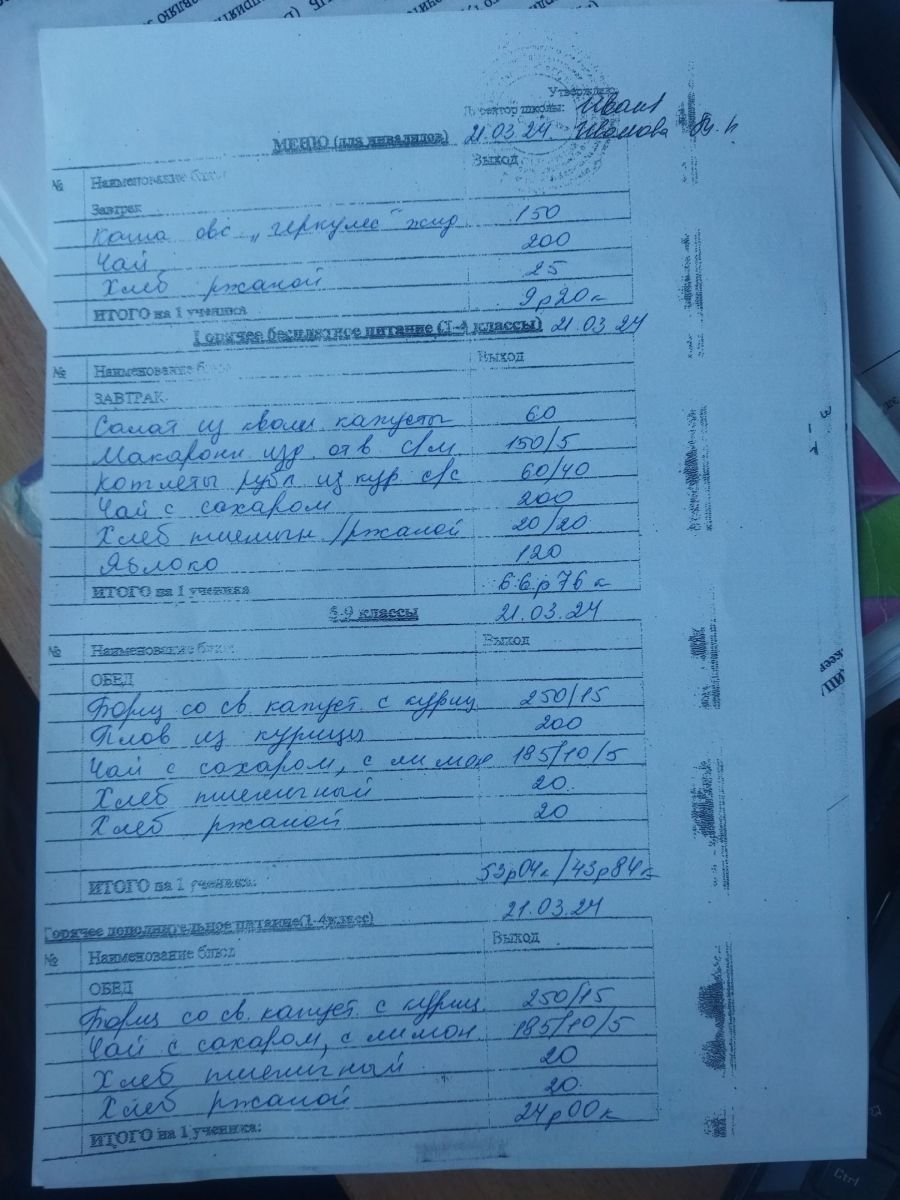 Утверждаю
Директор школы:
МЕНЮ (для инвалидов) 21.03.24 Иванова
№ Наименование блюд Выход
Завтрак
Каша овс "геркулес" жид 150
Чай 200
Хлеб ржаной 25
ИТОГО на 1 ученика 9р20к
Горячее бесплатное питание (1-4 классы) 21.03.24
№ Наименование блюд Выход
ЗАВТРАК
Салат из кваш капусты 60
Макарон изд. отв с/м 150/5
Котлеты рубл из кур с/с 60/40
Чай с сахаром 200
Хлеб пшеничн /ржаной 20/20
Яблоко 120
ИТОГО на 1 ученика 66р76к
5-9 классы 21.03.24
№ Наименование блюд Выход
ОБЕД
Борщ со св. капуст. с куриц 250/15
Плов из курицы 200
Чай с сахаром, с лимон 185/10/5
Хлеб пшеничный 20
Хлеб ржаной 20
ИТОГО на 1 ученика: 53р04к/43р84к
21.03.24
Горячее дополнительное питание(1-4класс)
№ Наименование блюд Выход
ОБЕД
Борщ со св. капуст. с куриц. 250/15
Чай с сахаром, с лимон. 185/10/5
Хлеб пшеничный 20
Хлеб ржаной 20.
ИТОГО на 1 ученика: 24р00к
Ctrl